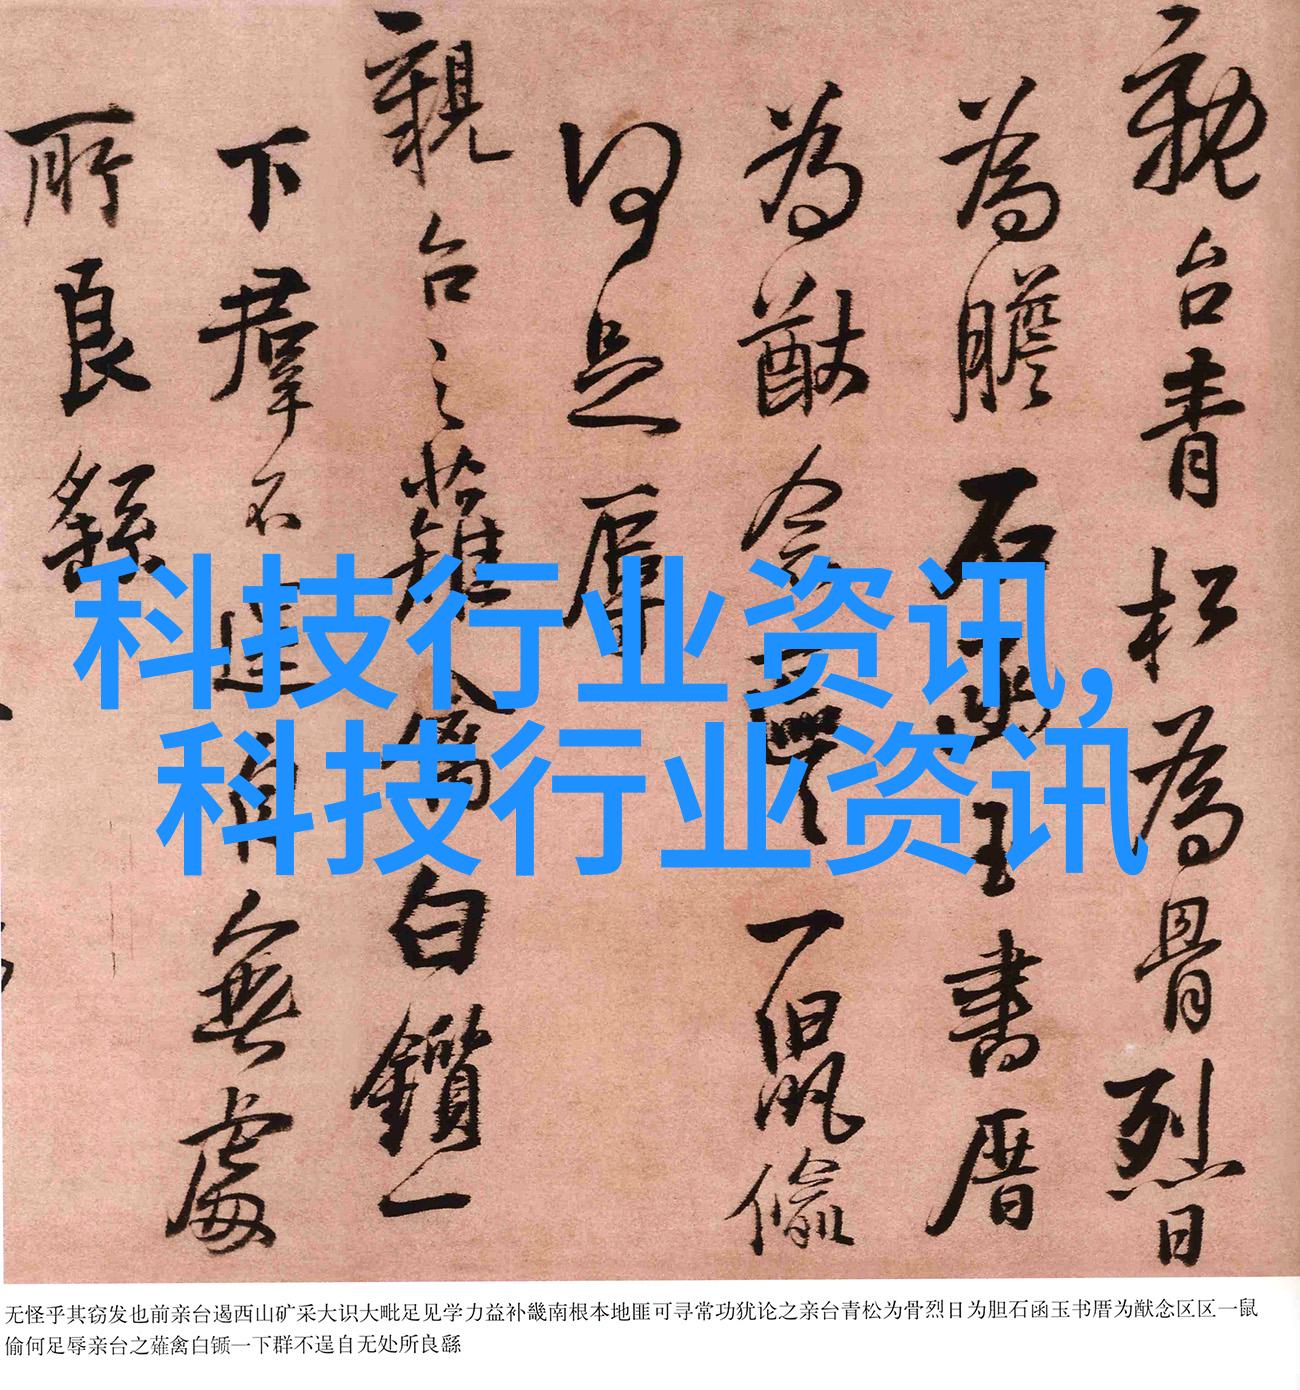 親台青松為骨烈日
為膽石函玉書厝
為猷念區區一鼠偷
何足辱
親台之薙禽白鑕一
下羣不逞自無處
所良繇
科技行业资讯,
科技行业资讯
无怪乎其窃发也前亲台遏西山矿采大识大毗足见学力益补畿南根本地匪可寻常功犹论之亲台青松为骨烈日为胆石函玉书厝为猷念区区一鼠
偷何足辱亲台之薙禽白锧一下群不逞自无处所良繇